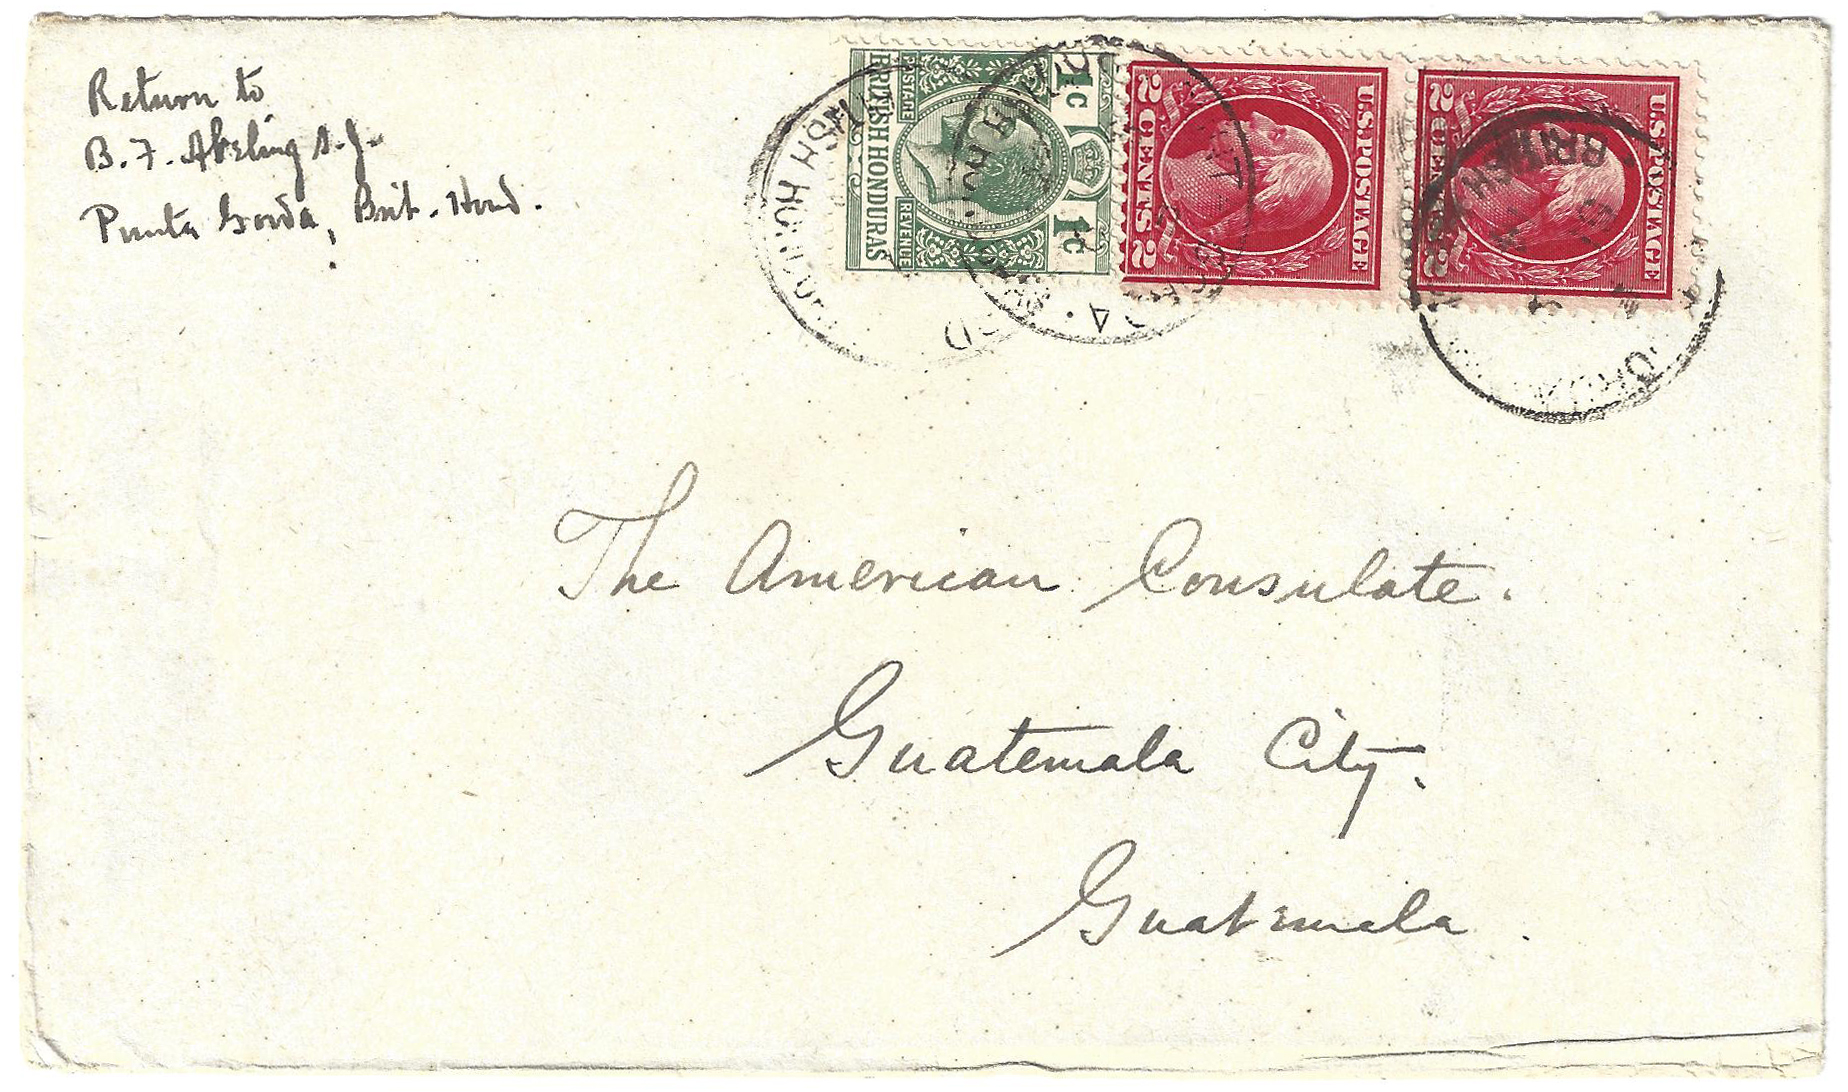 Return to
B. F. Abeling S. J.
Punta Gorda, Brit. Hond.
BRITISH HONDURAS
POSTAGE
REVENUE
1c
1c
U.S. POSTAGE
2 CENTS 2
U.S. POSTAGE
2 CENTS 2
BRITISH
The American Consulate.
Guatemala City.
Guatemala.